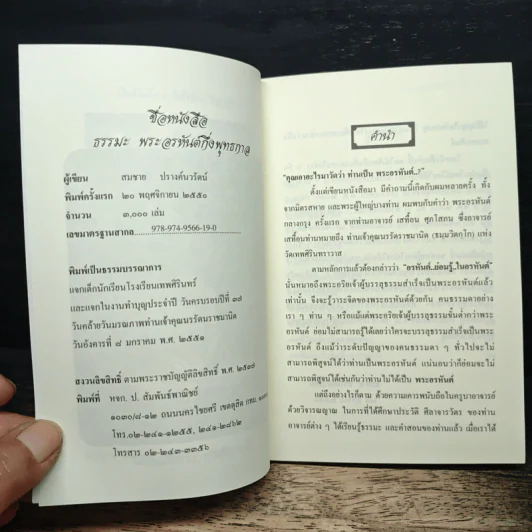 ชื่อหนังสือ
ธรรมะ พระอรหันต์กึ่งพุทธกาล
ผู้เขียน สมชาย ปรางค์นวรัตน์
พิมพ์ครั้งแรก ๒๐ พฤศจิกายน ๒๕๕๐
จำนวน ๓,๐๐๐ เล่ม
เลขมาตรฐานสากล 978-974-9566-19-0
พิมพ์เป็นธรรมบรรณาการ
แจกเด็กนักเรียนโรงเรียนเทพศิรินทร์
และแจกในงานทำบุญประจำปี วันครบรอบปีที่ ๓๗
วันคล้ายวันมรณภาพท่านเจ้าคุณนรรัตนราชมานิต
วันอังคารที่ ๘ มกราคม พ.ศ. ๒๕๕๑
สงวนลิขสิทธิ์ ตามพระราชบัญญัติลิขสิทธิ์ พ.ศ. ๒๕๓๗
พิมพ์ที่ หจก. ป. สัมพันธ์พาณิชย์
๑๐๓๐/๘-๑๒ ถนนนครไชยศรี เขตดุสิต กทม.
โทร.๐๒-๒๔๑-๑๒๕๕, ๒๔๑-๒๘๖๒
โทรสาร ๐๒-๒๔๓-๓๓๕๖
คำนำ
"คุณเอาอะไรมาวัดว่า ท่านเป็น พระอรหันต์..?"
ตั้งแต่เขียนหนังสือมา มีคำถามนี้เกิดกับผมหลายครั้ง ทั้ง
จากมิตรสหาย และพระผู้ใหญ่บางท่าน ผมพบกับคำว่า พระอรหันต์
กลางกรุง ครั้งแรก จากท่านอาจารย์ เสฐื้อน ศุภโสภณ ซึ่งอาจารย์
เสฐื้อนท่านหมายถึง ท่านเจ้าคุณนรราชมานิต (ธมฺมวิตกฺโก) แห่ง
วัดเทพศิรินทราวาส
ตามหลักการแล้วต้องกล่าวว่า "อรหันต์..ย่อมรู้..ในอรหันต์"
นั่นหมายถึงพระอริยเจ้าผู้บรรลุธรรมสำเร็จเป็นพระอรหันต์แล้ว
เท่านั้น จึงจะรู้วาระจิตของพระอรหันต์ด้วยกัน คนธรรมดาอย่าง
เรา ๆ ท่าน ๆ หรือแม้แต่พระอริยเจ้าผู้บรรลุธรรมขั้นต่ำกว่าพระ
อรหันต์ ย่อมไม่สามารถรู้ได้เลยว่าใครจะบรรลุธรรมสำเร็จเป็นพระ
อรหันต์ ถึงแม้ว่าระดับปัญญาของคนธรรมดา ๆ ทั่วไปจะไม่
สามารถพิสูจน์ได้ว่าท่านเป็นพระอรหันต์ แน่นอนว่าก็ย่อมจะไม่
สามารถพิสูจน์ได้เช่นกันว่าท่านไม่ได้เป็น พระอรหันต์
แต่ถึงอย่างไรก็ตาม ด้วยความเคารพนับถือในครูบาอาจารย์
ด้วยวิจารณญาณ ในการที่ได้ศึกษาประวัติ ศีลาจารวัตร ของท่าน
อาจารย์ต่าง ๆ ได้เรียนรู้ธรรมะ และคำสอนของท่านแล้ว เมื่อเราได้